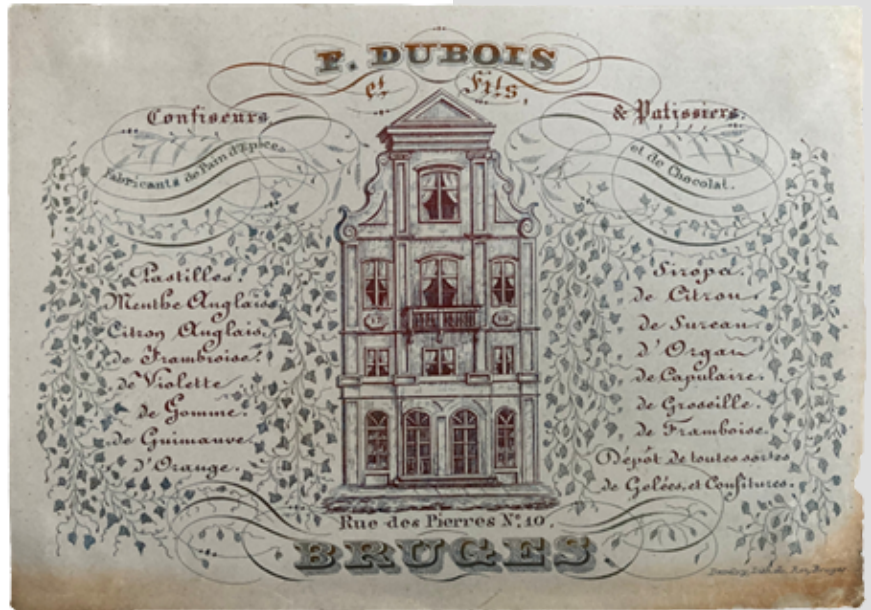 F. DUBOIS
et Fils,
Confiseurs & Patissiers,
Fabricants de Pain d'Epices et de Chocolat.
Pastilles.
Menthe Anglaise
Citron Anglais.
de Frambroise.
de Violette
de Gomme.
de Guimauve
d'Orange.
Sirops.
de Citron.
de Sureau.
d'Orgau
de Capulaire.
de Groseille.
de Framboise.
Dépôt de toutes sortes
de Gelées, et Confitures.
17 18
Rue des Pierres No. 10.
BRUGES
Lith. du Roi, Bruges